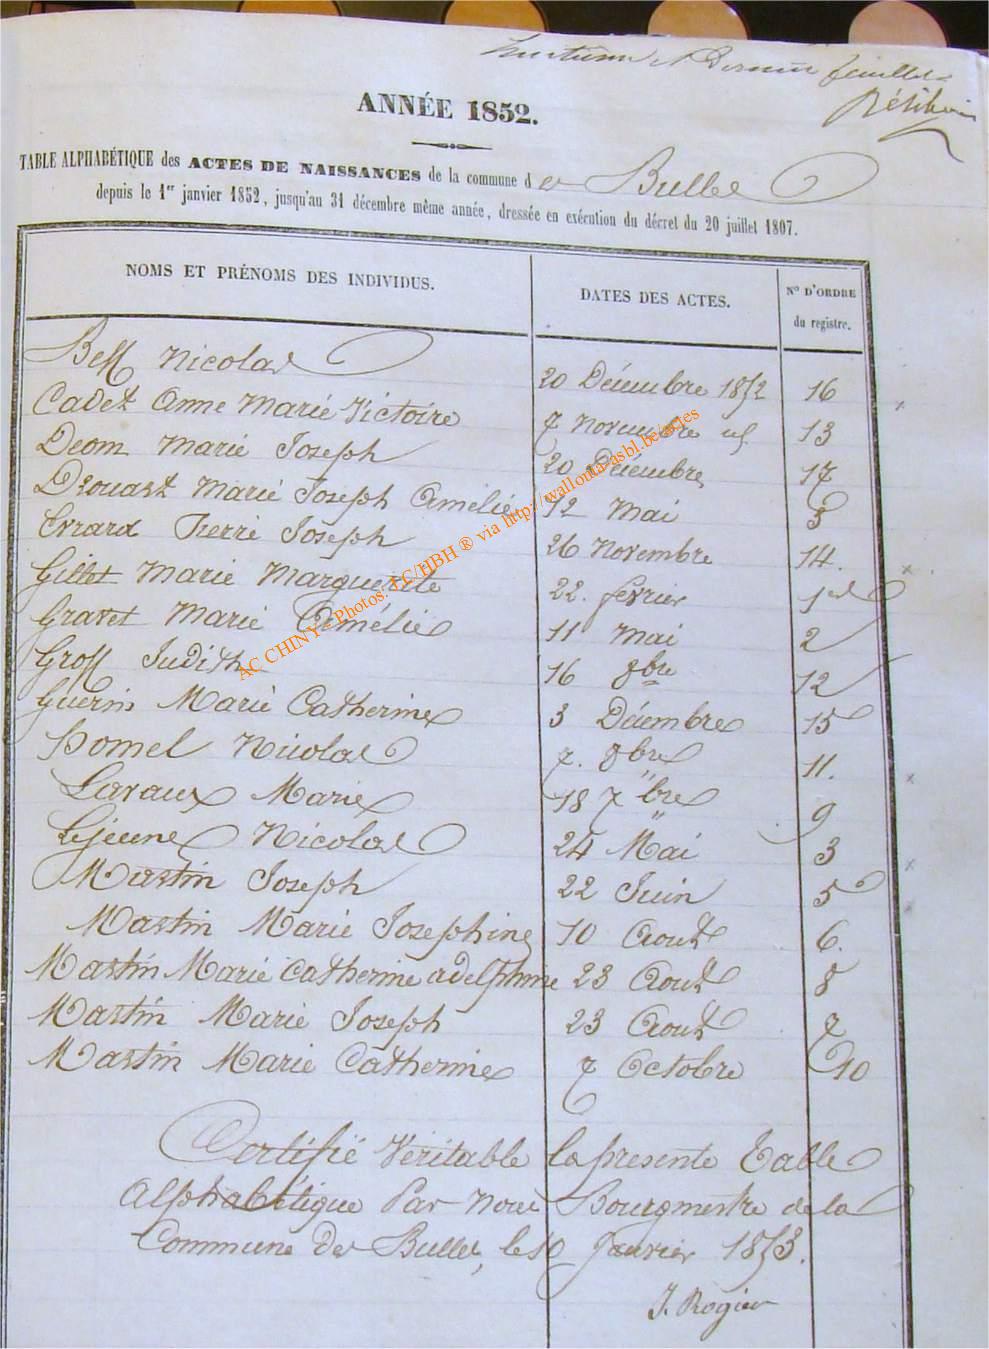 et Dernier feuillet
ANNÉE 1852.
TABLE ALPHABÉTIQUE des ACTES DE NAISSANCES de la commune de Bulles
depuis le 1er janvier 1852, jusqu'au 31 décembre même année, dressée en exécution du décret du 20 juillet 1807.
NOMS ET PRÉNOMS DES INDIVIDUS. DATES DES ACTES. No D'ORDRE du registre.
Bess Nicolas 20 Décembre 1852 16
Cadet Anne Marie Victoire 7 Novembre 13
Deom Marie Joseph 20 Décembre 17
Drouart Marie Joseph Amélie 12 Mai
Evrard Pierre Joseph 26 Novembre 14.
Gillet Marie Marguerite 22. fevrier 1er
Gravet Marie Amélie 11 Mai 2
Gross Judith 16 8bre 12
Guerin Marie Catherine 3 Décembre 15
Homel Nicolas 7. 8bre 11.
Lavaux Marie 18 7bre 9
Lejeune Nicolas 24 Mai 3
Martin Joseph 22 Juin 5
Martin Marie Josephine 10 Août 6.
Martin Marie Catherine adelphine 23 Août 8
Martin Marie Joseph 23 Août 7
Martin Marie Catherine 7 Octobre 10
Certifié Veritable la presente Table
Alphabétique Par Nous Bourgmestre de la
Commune de Bulles, le 10 Janvier 1853.
J. Rogier
AC CHINY - Photos: LC/HBH ® via http://wallonia-asbl.be/actes